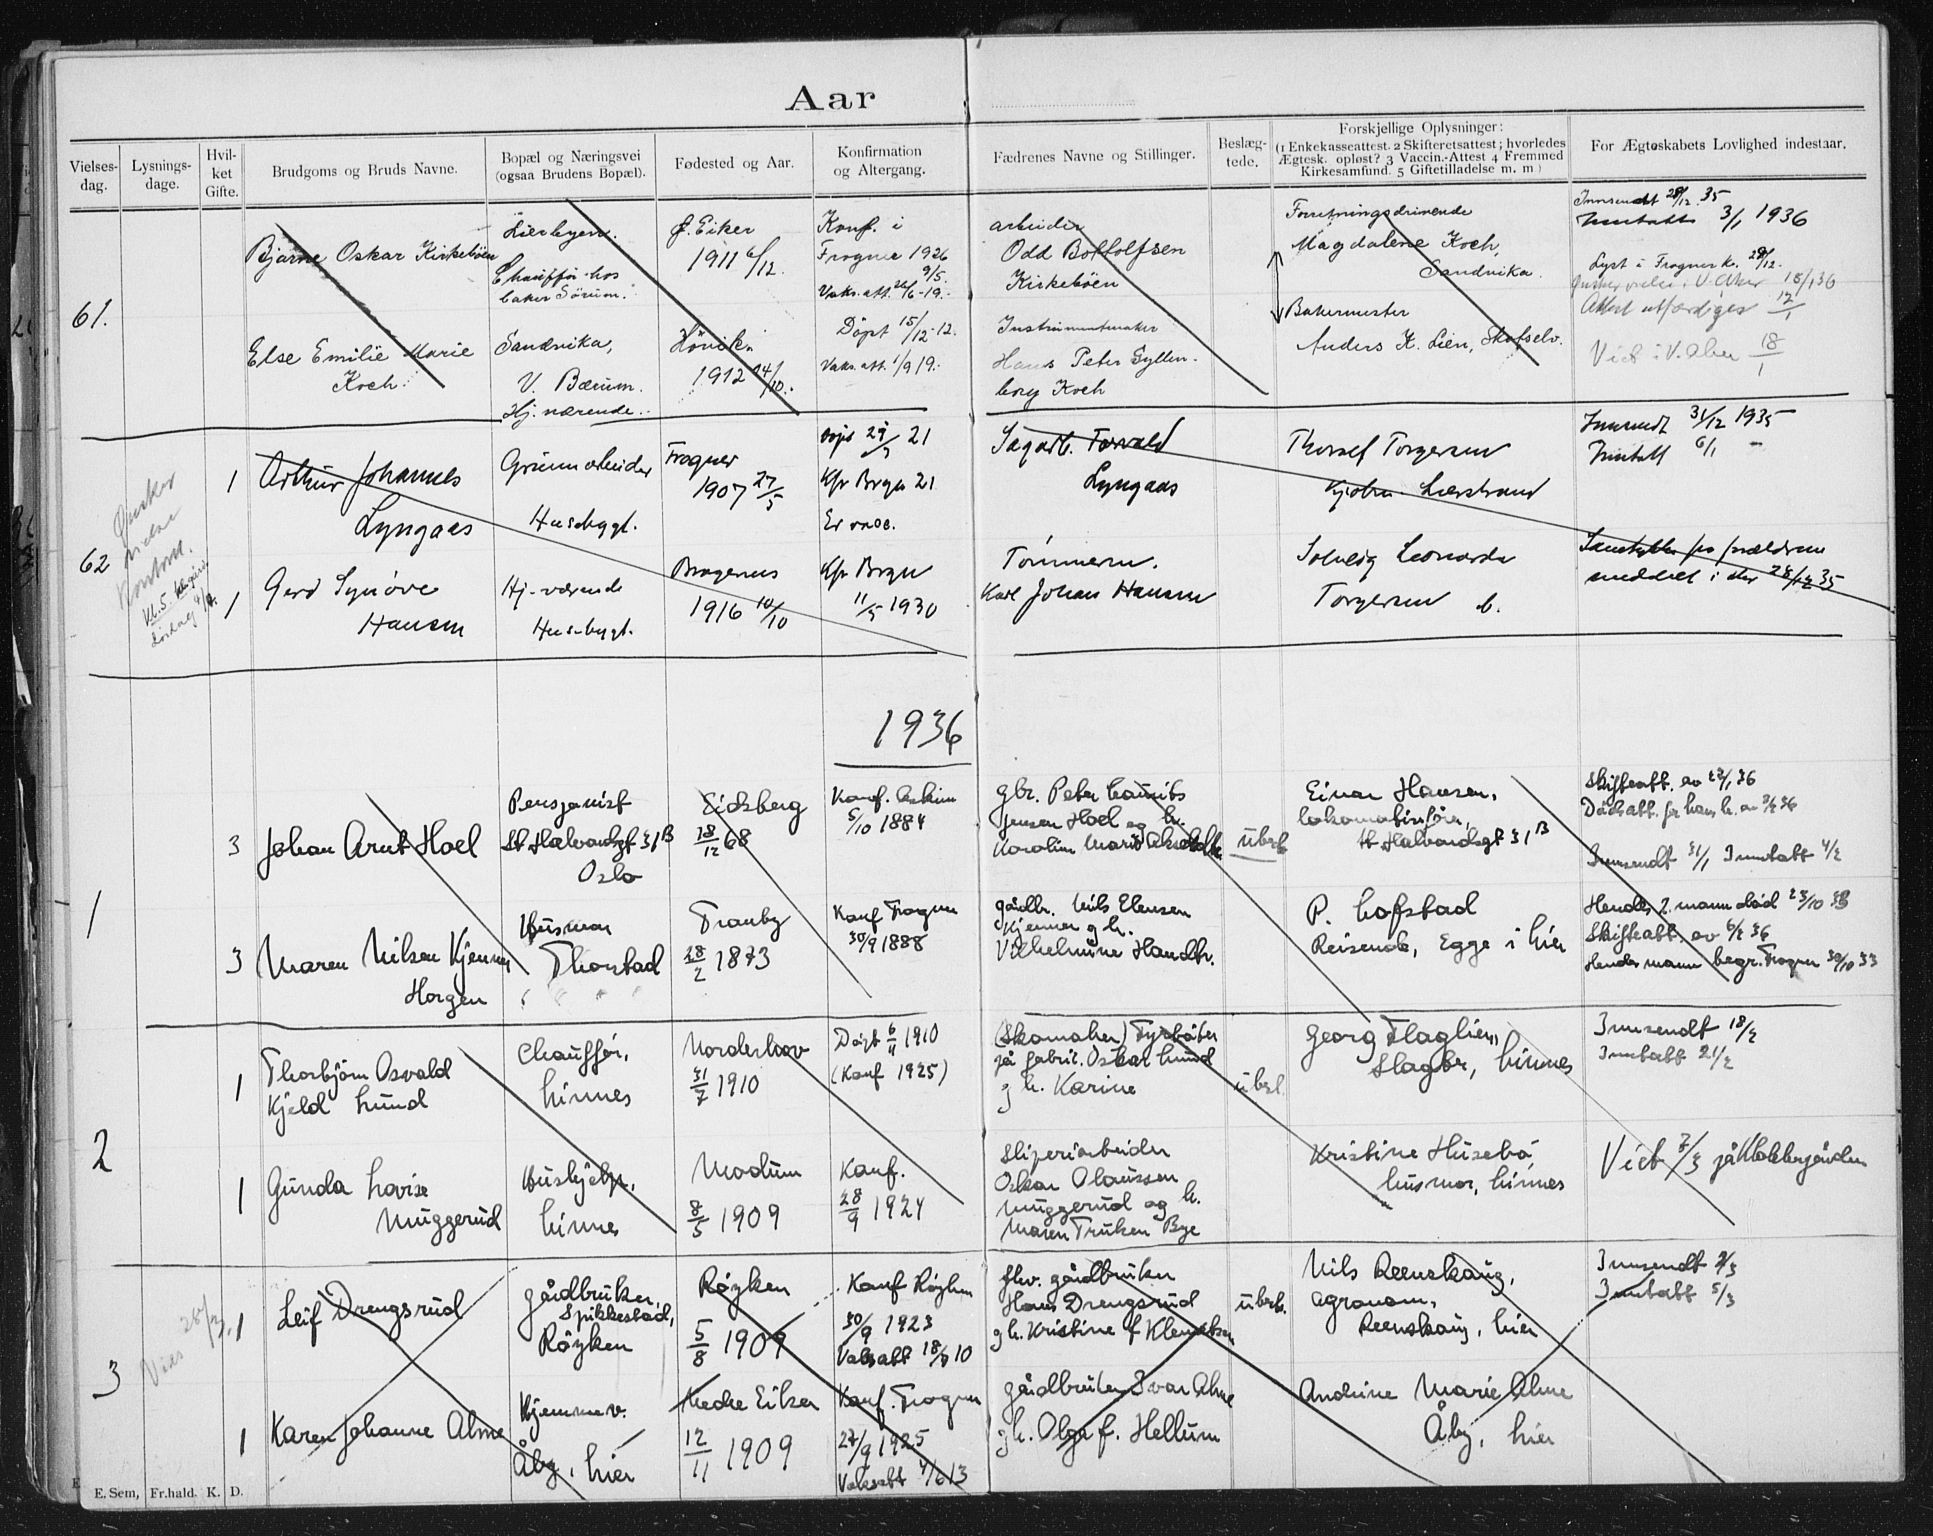 Aar
Vielses-dag.
Lysnings-dage.
Hvil-ket Gifte.
Brudgoms og Bruds Navne.
Bopæl og Næringsvei (ogsaa Brudens Bopæl).
Fødested og Aar.
Konfirmation og Altergang.
Fædrenes Navne og Stillinger.
Beslæg-tede.
Forskjellige Oplysninger: (1 Enkekasseattest. 2 Skifteretsattest; hvorledes Ægtesk. opløst? 3 Vaccin.-Attest 4 Fremmed Kirkesamfund. 5 Giftetilladelse m. m)
For Ægteskabets Lovlighed indestaar.
61.
Bjarne Oskar Kirkeböen
Lierbyen.
Chaufför hos
baker Sörum.
Ö. Eiker
1911 6/12.
Konf. i
Frogner 1926
9/5.
Vaks. att. 26/6-19.
arbeider
Odd Bottolfsen
Kirkeböen
Forretningsdrivende
Magdalene Koch,
Sandvika.
Innsendt 28/12 35
Inntatt 3/1 1936
Lyst i Frogner k. 29/12.
Else Emilie Marie
Koch.
Sandvika,
V. Bærum.
Hj. værende.
Hövik.
1912 14/10.
Döpt 15/12-12.
Vaks. att. 1/9 19.
Instrumentmaker
Hans Peter Gyllen-
borg Koch
Bakermester
Anders K. Lien, Skotselv.
Attest utferdiges 17/1
Viet i V. Aker 18/1
62
Ønsker
vielse
kontoret.
1
Arthur Johannes
Lyngaas
Grunnarbeider
Husebygt.
Frogner
1907 27/5
Kfr Brgn 21
Er vacc.
Sagarb. Torvald
Lyngaas
Thoralf Torgersen
Lierstrand
Innsendt 31/12 1935
Inntatt 6/1 -
1
Gerd Synöve
Hansen
Hj-værende
Husebygt.
Bragernes
1916 10/10
Kfr Brgn
11/5 1930
Tömmerm.
Karl Johan Hansen
Solveig Leonarda
Torgersen
Samtykke fra foreldrene
meddelt i dag 28/12 35
1936
1
3
Johan Arnt Hoel
Pensjonist
St Halvardsgt 31B
Oslo
Eidsberg
18/12 68
Konf. Askim
5/10 1884
gbr. Peter Laurits
Jensen Hoel og h.
Karoline Marie
ubesl.
Einar Hansen,
lokomotivför,
St Halvardsgt 31B
Skifteatt. av 27/1 36
Dödsatt. for hans h. av 3/2 36
Innsendt 31/1 Inntatt 4/2
3
Maren Nilsen Kjenner
Horgen
Husmor
Thorstad
Tranby
28/2 1873
Konf Frogner
30/9 1888
gårdbr. Nils Elensen
Kjenner og h.
Vilhelmine Hansdtr.
P. Lofstad
Reisende, Egge i Lier
Hendes 2. mann död 23/10 33
Skifteatt av 6/2 36
Hendes mann begr. Frogner 30/10 33
2
1
Thorbjörn Osvald
Kjeld Lund
Chaufför,
Linnes
Norderhov
31/7 1910
Döpt 6/11 1910
(Konf 1925)
(Skomaker) Fyrböter
på fabrik. Oskar Lund
og h. Karine
ubesl.
Georg Flaglien,
Slagter, Linnes
Innsendt 18/2
Inntatt 21/2
1
Gunda Lovise
Muggerud
Hushjelp,
Linnes
Modum
8/5 1909
Konf.
28/9 1924
Sliperiarbeider
Oskar Olaussen
Muggerud og h.
Maren Truksen Bye
Kristine Husebö
husmor, Linnes
Viet 7/3 på Klokkergården
3
Viet 28/3.
1
Leif Drengsrud
gårdbruker,
Spikkestad,
Røyken
Røyken
5/8 1909
Konf Røyken
30/9 1923
Vaksatt 18/9 10
fhv. gårdbruker
Hans Drengsrud
og h. Kristine f Klemetsen
ubesl.
Nils Reenskaug,
agronom,
Reenskaug, Lier
Innsendt 3/3
Inntatt 5/3
1
Karen Johanne Alme
Hjemmev.
Åby, Lier
Nedre Eiker
12/11 1909
Konf. Frogner
27/9 1925
Vaksatt 4/6 13
gårdbruker Ivar Alme
og h. Olga f. Hellum
Andrine Marie Alme
Åby, Lier
E. Sem, Fr.hald. K. D.